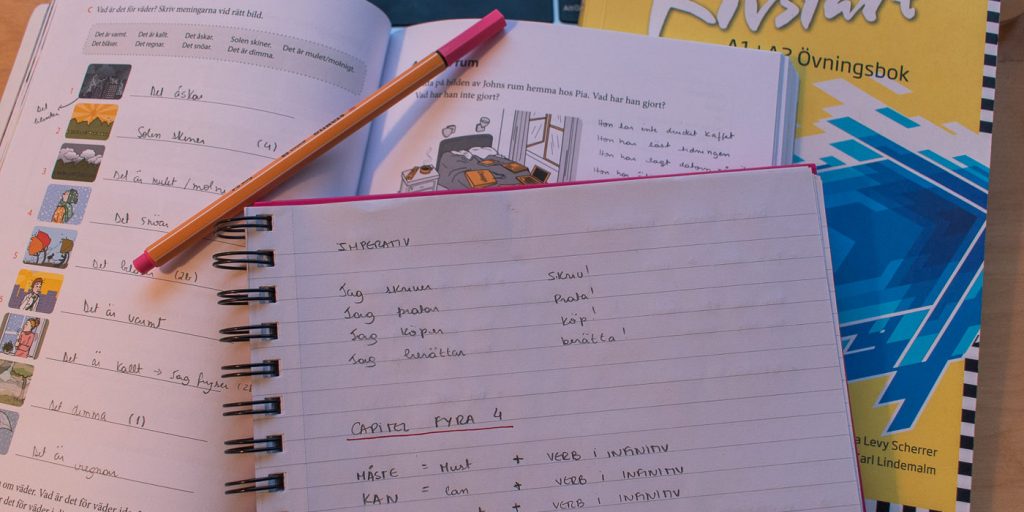 C Vad är det för väder? Skriv meningarna vid rätt bild.
Det är varmt. Det är kallt. Det åskar. Solen skiner. Det är mulet/molnigt.
Det blåser. Det regnar. Det snöar. Det är dimma.
1 Det åskar
2 Solen skiner (4)
3 Det är mulet/molni
4 Det snöar
5 Det (2b)
Det är varmt
Det är kallt → Jag fryser
Det dimma (1)
Det är
om väder. Vad är det för väder
rum
på bilden av Johns rum hemma hos Pia. Vad har han gjort?
Vad har han inte gjort?
Hon har inte druckit kaffet
Hon har läst tidningen
Hon har lagt datorn
Hon har
IMPERATIV
Jag skriver Skriv!
Jag pratar Prata!
Jag köper köp!
Jag berättar berätta!
CAPITEL FYRA 4
MÅSTE = Must + VERB I INFINITIV
KAN = can + VERB I INFINITIV
+ VERB I INFINITIV
Rivstart
A1+A2 Övningsbok
Levy Scherrer
Karl Lindemalm